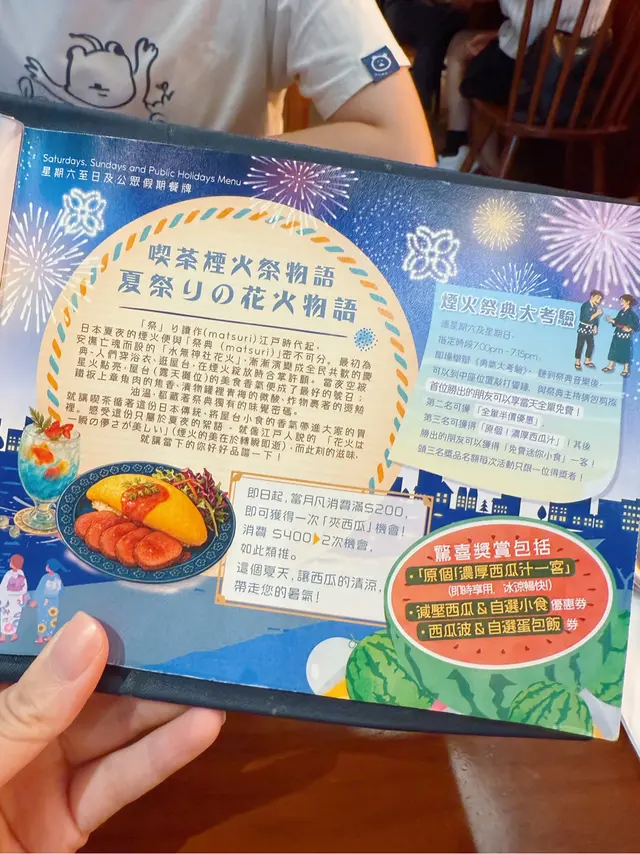 Saturdays, Sundays and Public Holidays Menu
星期六至日及公眾假期餐牌
喫茶煙火祭物語
夏祭りの花火物語
「祭」り讀作(matsuri)江戸時代起,
日本夏夜的煙火便與「祭典 (matsuri)」密不可分。最初為
安撫亡魂而設的「水無神社花火」,漸漸演變成全民共歡的慶
典。人們穿浴衣、逛屋台,在煙火綻放時合掌許願。當夜空被
星火點亮,屋台(露天攤位)的美食香氣便成了最好的註召:
鐵板上章魚肉的焦香、漬物罐裡青梅的微酸、炸物裹著的燙
油溫,都藏著祭典獨有的味覺密碼。
就讓喫茶循著這份日本傳統,將屋台小食的香氣帶進大家的胃
裡。感受這份只屬於夏夜的絮語。就像江戸人說的「花火は
一瞬の儚さが美しい」(煙火的美在於轉瞬即逝),而此刻的滋味,
就讓當下的你好好品嚐一下!
煙火祭典大考驗
逢星期六及星期日,
指定時段7:00pm - 7:15pm,
聽到祭典音樂後,
可以到中座位置敲打響鑼,與祭典主持猜包剪揼
首位勝出的朋友可以享當天全單免費!
第二名可獲「全單半價優惠」,
第三名可獲得「原個!濃厚西瓜汁」!其後
勝出的朋友可以獲得「免費送你小食」一客!
頭三名獎品名額每次活動只限一位得獎者!
即日起,當月凡消費滿$200,
即可獲得一次「夾西瓜」機會!
消費 $400▶2次機會,
如此類推。
這個夏天,讓西瓜的清涼,
帶走您的暑氣!
驚喜獎賞包括
・「原個!濃厚西瓜汁一客」
(即時享用,冰涼暢快!)
・減壓西瓜&自選小食優惠券
・西瓜波&自選蛋包飯 券